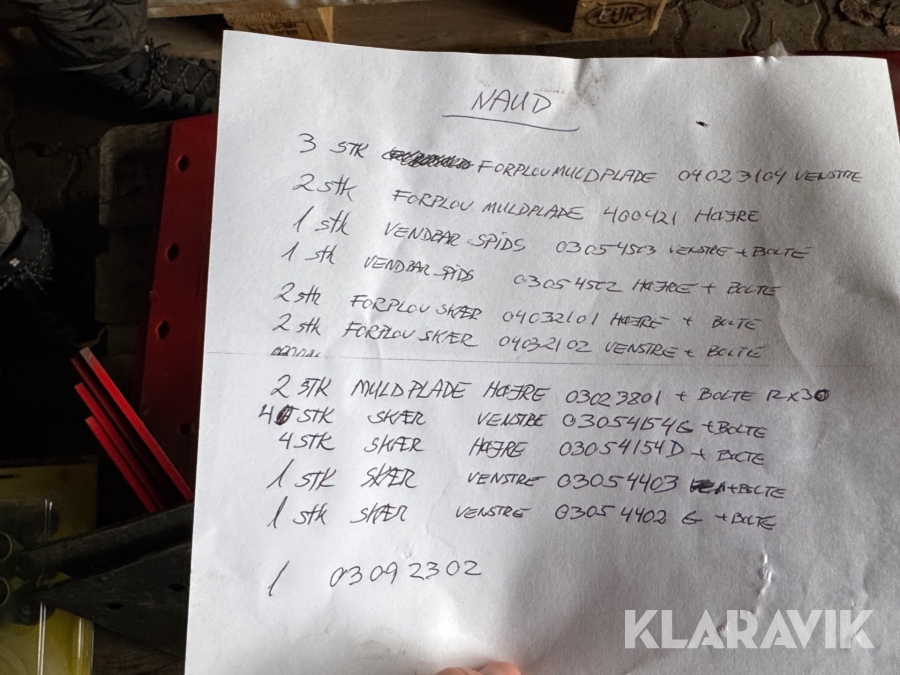 EUR
NAUD
3 STK FORPLOV MULDPLADE 04023104 VENSTRE
2 stk FORPLOV MULDPLADE 400421 HØJRE
1 stk VENDBAR SPIDS 03054503 VENSTRE + BOLTE
1 stk VENDBAR SPIDS 03054502 HØJRE + BOLTE
2 stk FORPLOV SKÆR 04032101 HØJRE + BOLTE
2 stk FORPLOV SKÆR 04032102 VENSTRE + BOLTE
2 STK MULDPLADE HØJRE 03023801 + BOLTE RX30
4 STK SKÆR VENSTRE 03054154G + BOLTE
4 STK SKÆR HØJRE 03054154D + BOLTE
1 STK SKÆR VENSTRE 03054403 + BOLTE
1 stk SKÆR VENSTRE 03054402 G + BOLTE
1 03092302
KLARAVIK